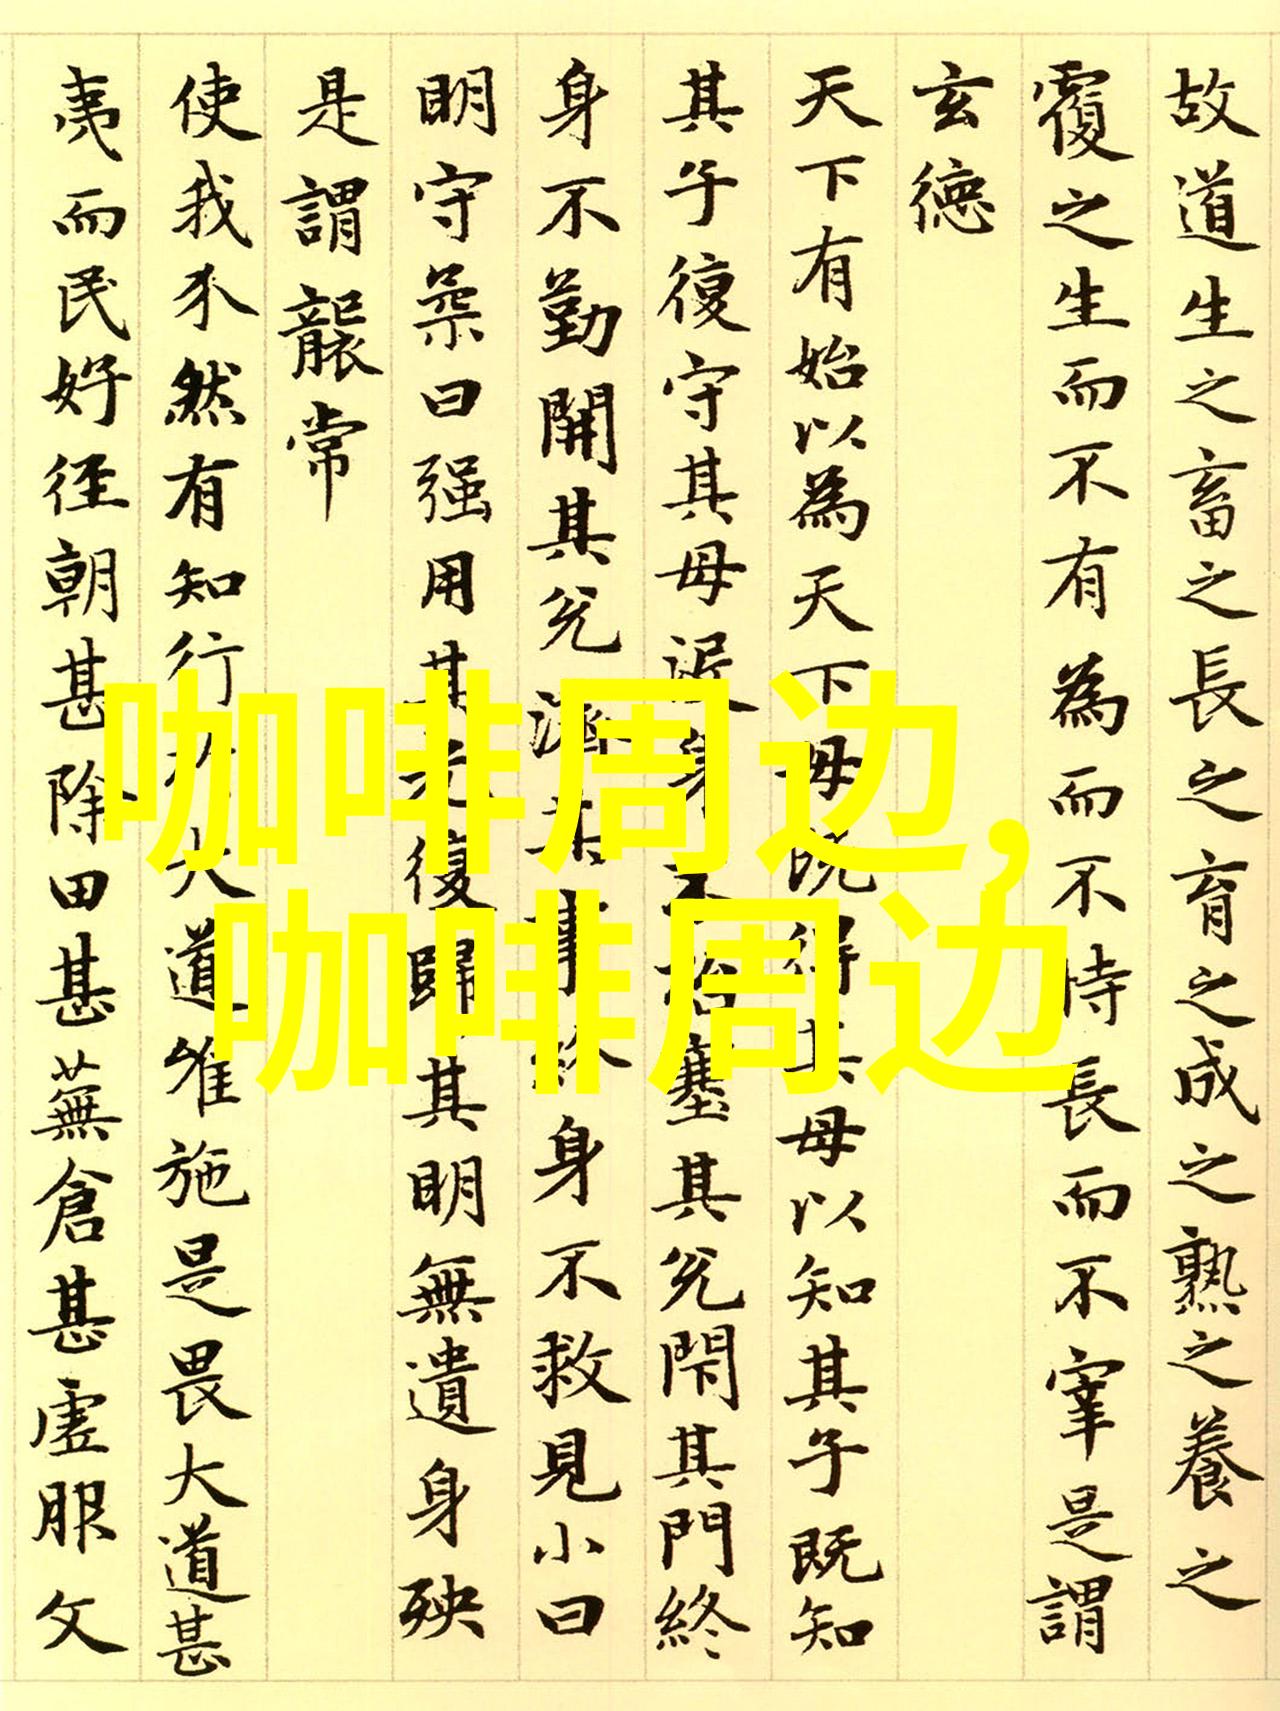 故道生之畜之長之育之成之熟之養之
覆之生而不有為而不恃長而不宰是謂
玄德
天下有始以為天下母既得其母以知其子既知
其子復守其母没身不殆塞其兑閉其門終
身不勤開其兑濟其事終身不救見小曰
明守柔曰强用其光復歸其明無遺身殃
是謂襲常
使我介然有知行於大道唯施是畏大道甚
夷而民好徑朝甚除田甚蕪倉甚虚服文
咖啡周边,
咖啡周边